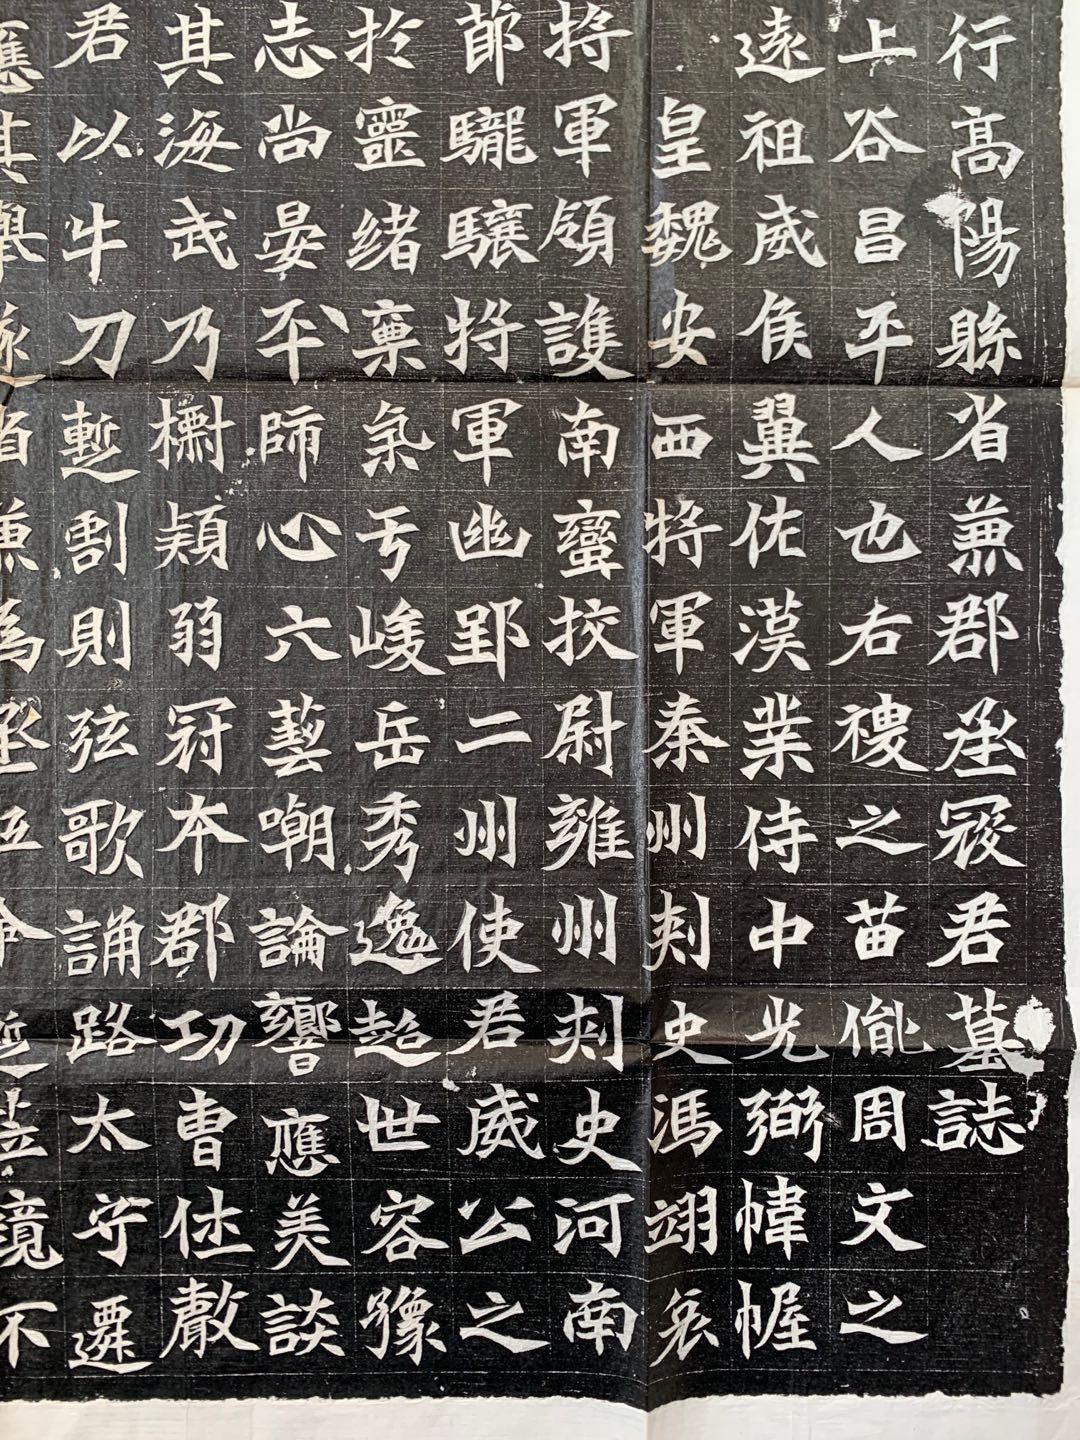 行高陽縣省兼郡丞寇君墓誌
上谷昌平人也右禝之苗胤周文之
遠祖威侯翼佐漢業侍中光弼幃幄
皇魏安西將軍秦州刺史馮翊哀
將軍領護南蠻挍尉雍州刺史河南
節䮾驤將軍幽郢二州使君威公之
於靈緒稟氣于峻岳秀逸超世容豫
志尚晏平師心六藝嘲論響應美談
其海武乃穎弱冠本郡功曹
君以牛刀蹔割則弦歌誦路太守遷
應其舉省兼為丞不